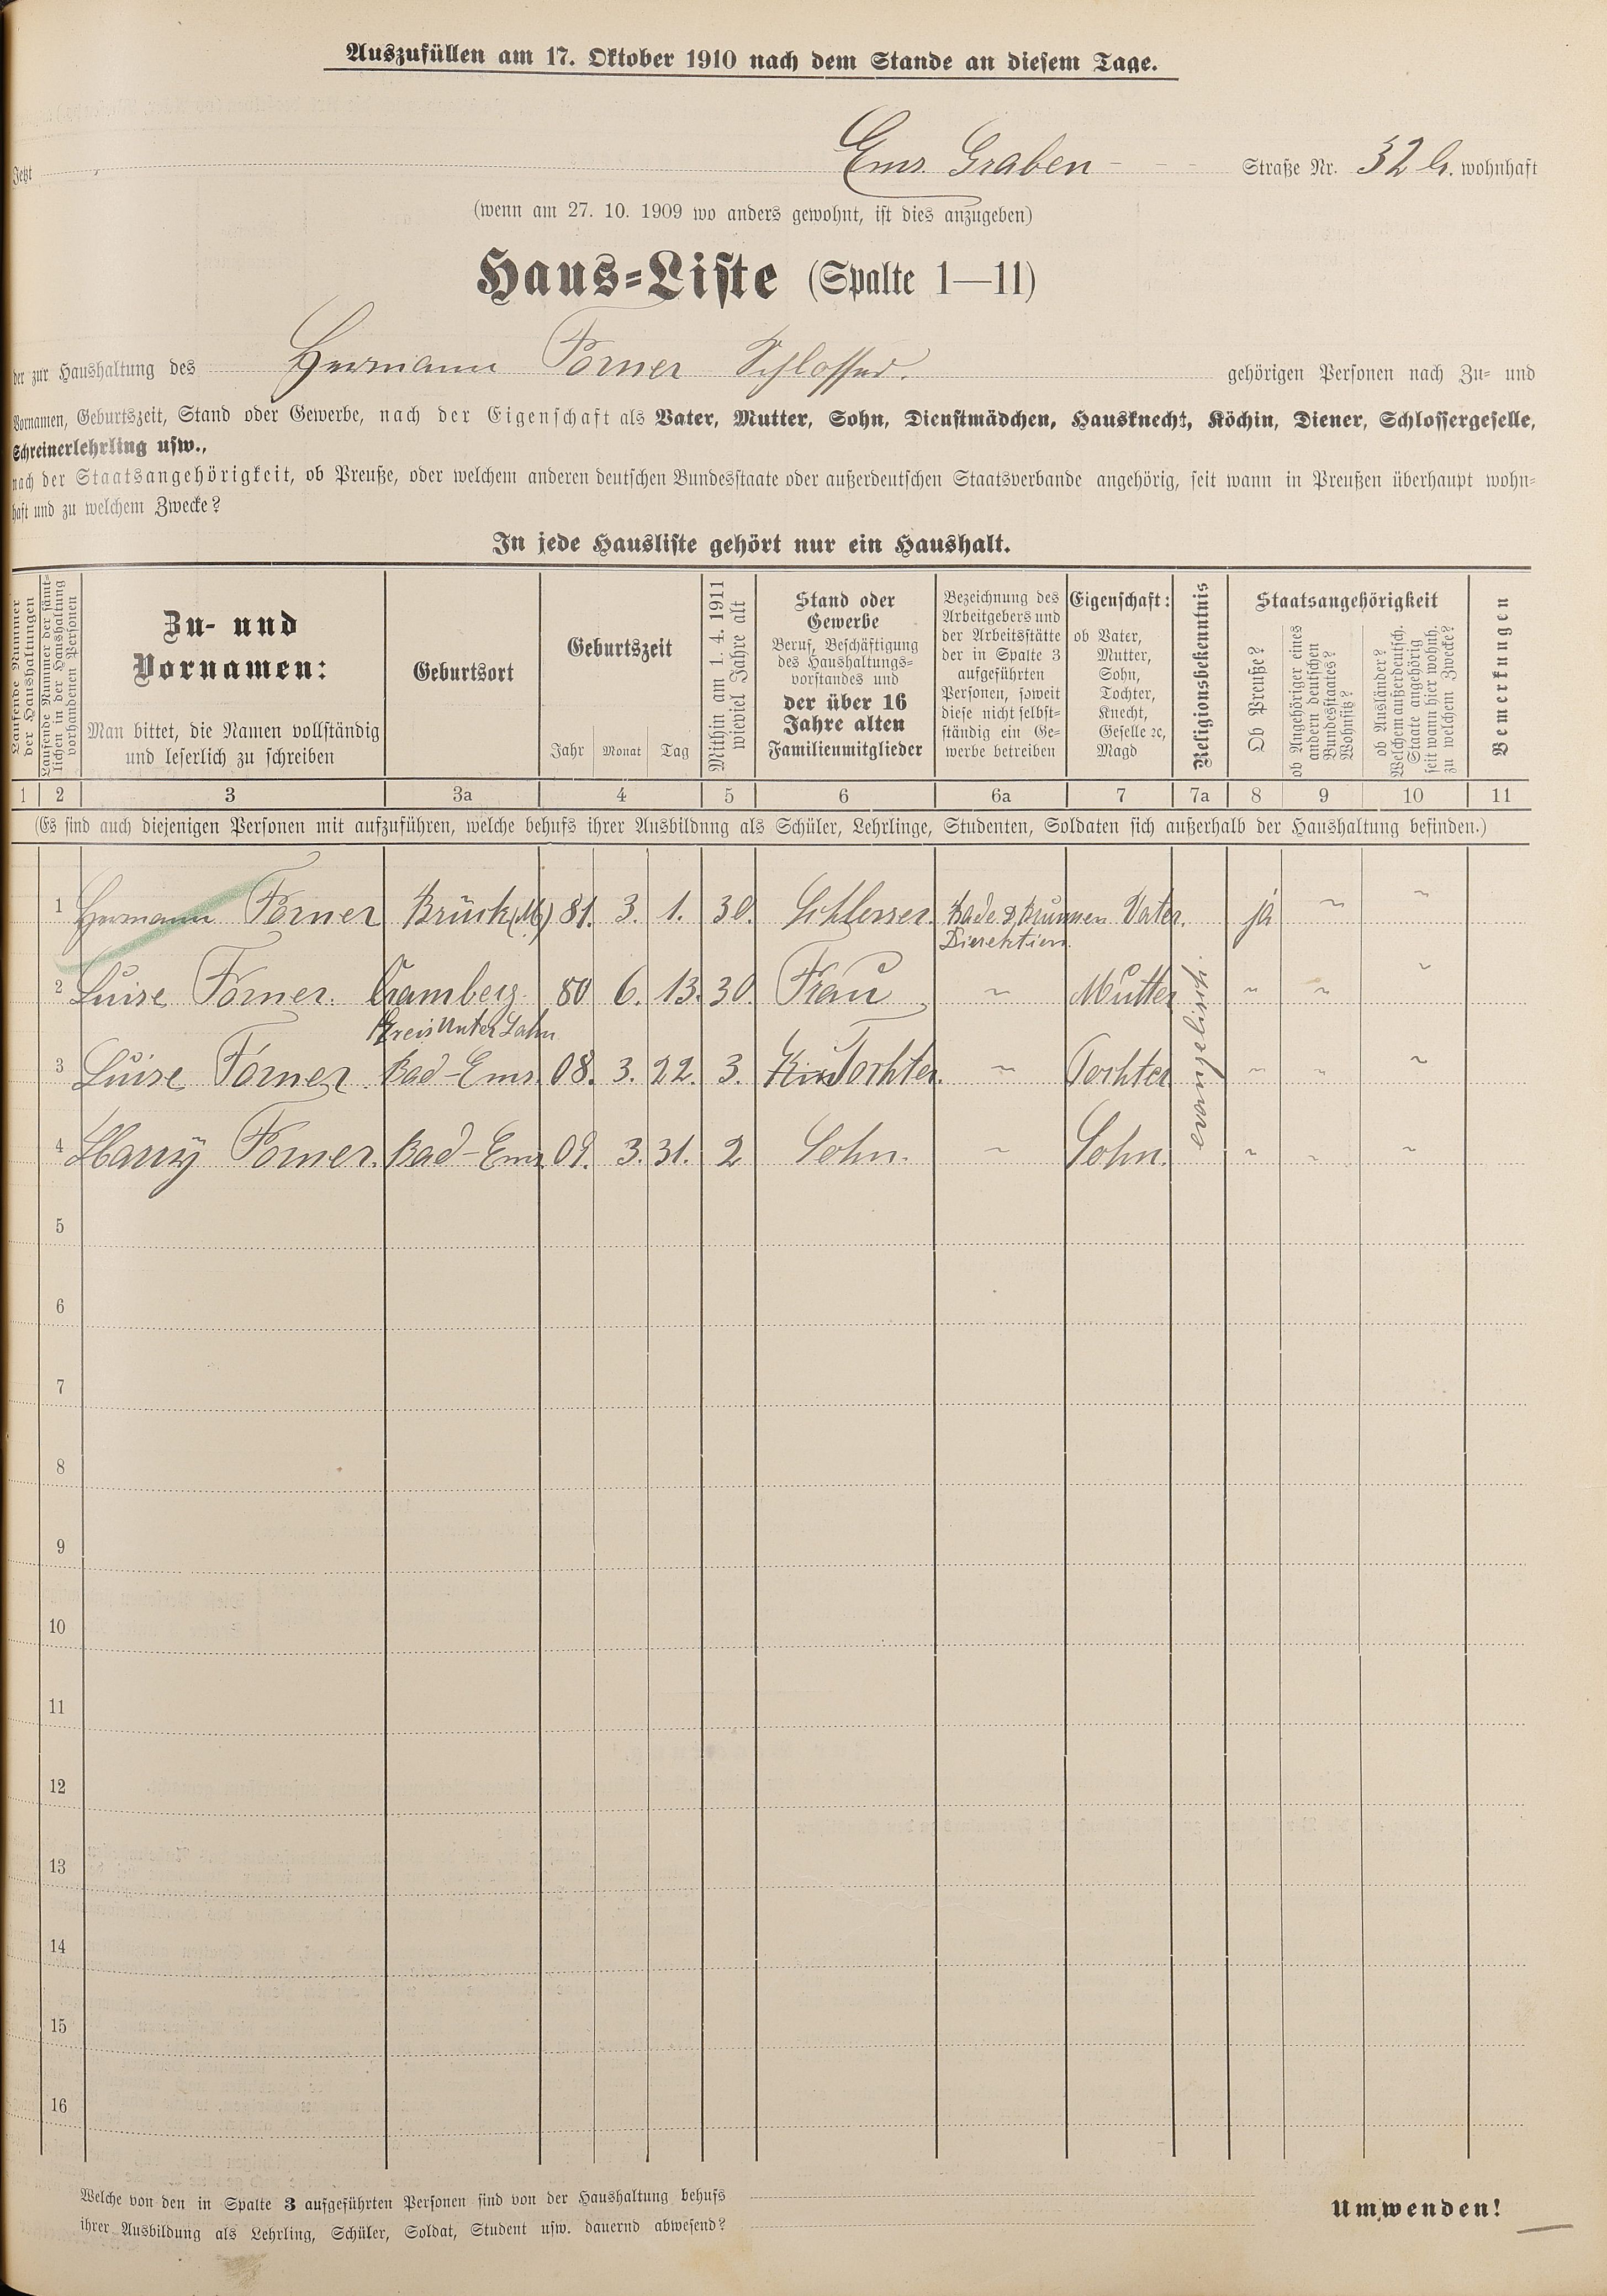 Auszufüllen am 17. Oktober 1910 nach dem Stande an diesem Tage.
Jetzt Ems. Graben - - - Straße Nr. 32 b. wohnhaft
(wenn am 27. 10. 1909 wo anders gewohnt, ist dies anzugeben)
Haus-Liste (Spalte 1—11)
der zur Haushaltung des Hermann Forner Schlosser. gehörigen Personen nach Zu- und
Vornamen, Geburtszeit, Stand oder Gewerbe, nach der Eigenschaft als Vater, Mutter, Sohn, Dienstmädchen, Hausknecht, Köchin, Diener, Schlossergeselle,
Schreinerlehrling usw.,
nach der Staatsangehörigkeit, ob Preuße, oder welchem anderen deutschen Bundesstaate oder außerdeutschen Staatsverbande angehörig, seit wann in Preußen überhaupt wohn-
haft und zu welchem Zwecke?
In jede Hausliste gehört nur ein Haushalt.
Laufende Nummer
der Haushaltungen
Laufende Nummer der sämt-
lichen in der Haushaltung
vorhandenen Personen
Zu- und
Vornamen:
Man bittet, die Namen vollständig
und leserlich zu schreiben
Geburtsort
Geburtszeit
Jahr Monat Tag
Mithin am 1. 4. 1911
wieviel Jahre alt
Stand oder
Gewerbe
Beruf, Beschäftigung
des Haushaltungs-
vorstandes und
der über 16
Jahre alten
Familienmitglieder
Bezeichnung des
Arbeitgebers und
der Arbeitsstätte
der in Spalte 3
aufgeführten
Personen, soweit
diese nicht selbst-
ständig ein Ge-
werbe betreiben
Eigenschaft:
ob Vater,
Mutter,
Sohn,
Tochter,
Knecht,
Geselle ꝛc,
Magd
Religionsbekenntnis
Staatsangehörigkeit
Ob Preuße?
ob Angehöriger eines
andern deutschen
Bundesstaates?
Wohnsitz?
ob Ausländer?
Welchem außerdeutsch.
Staate angehörig
seit wann hier wohnh.
zu welchem Zwecke?
Bemerkungen
1 2 3 3a 4 5 6 6a 7 7a 8 9 10 11
(Es sind auch diejenigen Personen mit aufzuführen, welche behufs ihrer Ausbildung als Schüler, Lehrlinge, Studenten, Soldaten sich außerhalb der Haushaltung befinden.)
1 Hermann Forner Brück (M) 81. 3. 1. 30. Schlosser. Bade & Brunnen Vater. ja ~ ~
Dierektion.
2 Luise Forner. Cramberg. 80 6. 13. 30. Frau ~ Mutter ~ ~ ~
Kreis Unter Lahn
evangelisch.
3 Luise Forner Bad-Ems. 08. 3. 22. 3. Kin Tochter. ~ Tochter ~ ~ ~
4 Harry Forner. Bad-Ems 09. 3. 31. 2 Sohn. ~ Sohn. ~ ~ ~
5
6
7
8
9
10
11
12
13
14
15
16
Welche von den in Spalte 3 aufgeführten Personen sind von der Haushaltung behufs
ihrer Ausbildung als Lehrling, Schüler, Soldat, Student usw. dauernd abwesend?
Umwenden!